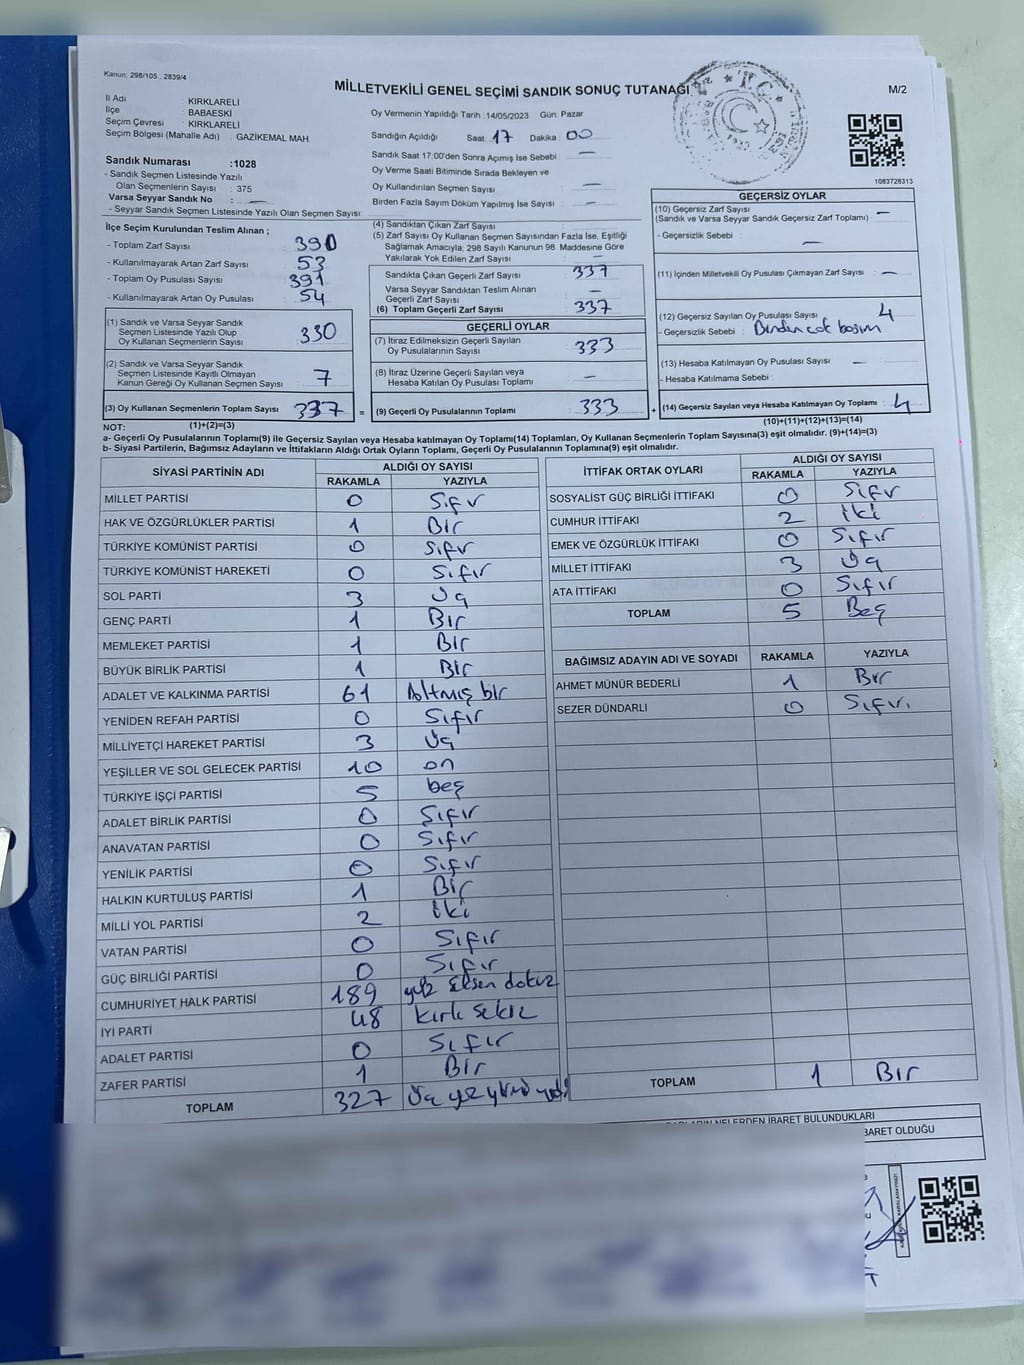 Kanun: 298/105 , 2839/4
MİLLETVEKİLİ GENEL SEÇİMİ SANDIK SONUÇ TUTANAĞI
M/2
İl Adı KIRKLARELİ
İlçe BABAESKİ
Seçim Çevresi : KIRKLARELİ
Seçim Bölgesi (Mahalle Adı) GAZİKEMAL MAH
Sandık Numarası :1028
- Sandık Seçmen Listesinde Yazılı
Olan Seçmenlerin Sayısı : 375
Varsa Seyyar Sandık No : —
- Seyyar Sandık Seçmen Listesinde Yazılı Olan Seçmen Sayısı
Oy Vermenin Yapıldığı Tarih : 14/05/2023 Gün: Pazar
Sandığın Açıldığı Saat: 17 Dakika : 00
Sandık Saat 17:00'den Sonra Açımış İse Sebebi : —
Oy Verme Saati Bitiminde Sırada Bekleyen ve
Oy Kullandırılan Seçmen Sayısı : —
Birden Fazla Sayım Döküm Yapılmış İse Sayısı : —
1083728313
İlçe Seçim Kurulundan Teslim Alınan ;
- Toplam Zarf Sayısı 390
- Kullanılmayarak Artan Zarf Sayısı : 53
- Toplam Oy Pusulası Sayısı : 391
- Kullanılmayarak Artan Oy Pusulası : 54
(1) Sandık ve Varsa Seyyar Sandık
Seçmen Listesinde Yazılı Olup
Oy Kullanan Seçmenlerin Sayısı : 330
(2) Sandık ve Varsa Seyyar Sandık
Seçmen Listesinde Kayıtlı Olmayan
Kanun Gereği Oy Kullanan Seçmen Sayısı : 7
(3) Oy Kullanan Seçmenlerin Toplam Sayısı : 337 =
(4) Sandıktan Çıkan Zarf Sayısı :
(5) Zarf Sayısı Oy Kullanan Seçmen Sayısından Fazla İse, Eşitliği
Sağlamak Amacıyla, 298 Sayılı Kanunun 98. Maddesine Göre
Yakılarak Yok Edilen Zarf Sayısı : —
Sandıkta Çıkan Geçerli Zarf Sayısı : 337
Varsa Seyyar Sandıktan Teslim Alınan
Geçerli Zarf Sayısı : —
(6) Toplam Geçerli Zarf Sayısı : 337
GEÇERLİ OYLAR
(7) İtiraz Edilmeksizin Geçerli Sayılan
Oy Pusulalarının Sayısı : 333
(8) İtiraz Üzerine Geçerli Sayılan veya
Hesaba Katılan Oy Pusulası Toplamı : —
(9) Geçerli Oy Pusulalarının Toplamı : 333 +
GEÇERSİZ OYLAR
(10) Geçersiz Zarf Sayısı : —
(Sandık ve Varsa Seyyar Sandık Geçersiz Zarf Toplamı)
- Geçersizlik Sebebi : —
(11) İçinden Milletvekili Oy Pusulası Çıkmayan Zarf Sayısı : —
(12) Geçersiz Sayılan Oy Pusulası Sayısı : 4
- Geçersizlik Sebebi : Birden çok basım
(13) Hesaba Katılmayan Oy Pusulası Sayısı : —
- Hesaba Katılmama Sebebi :
(14) Geçersiz Sayılan veya Hesaba Katılmayan Oy Toplamı : 4
NOT: (1)+(2)=(3) (10)+(11)+(12)+(13)=(14)
a- Geçerli Oy Pusulalarının Toplamı(9) ile Geçersiz Sayılan veya Hesaba katılmayan Oy Toplamı(14) Toplamları, Oy Kullanan Seçmenlerin Toplam Sayısına(3) eşit olmalıdır. (9)+(14)=(3)
b- Siyasi Partilerin, Bağımsız Adayların ve İttifakların Aldığı Ortak Oyların Toplamı, Geçerli Oy Pusulalarının Toplamına(9) eşit olmalıdır.
SİYASİ PARTİNİN ADI ALDIĞI OY SAYISI
RAKAMLA YAZIYLA
MİLLET PARTİSİ 0 Sıfır
HAK VE ÖZGÜRLÜKLER PARTİSİ 1 Bir
TÜRKİYE KOMÜNİST PARTİSİ 0 Sıfır
TÜRKİYE KOMÜNİST HAREKETİ 0 Sıfır
SOL PARTİ 3 Üç
GENÇ PARTİ 1 Bir
MEMLEKET PARTİSİ 1 Bir
BÜYÜK BİRLİK PARTİSİ 1 Bir
ADALET VE KALKINMA PARTİSİ 61 Altmış bir
YENİDEN REFAH PARTİSİ 0 Sıfır
MİLLİYETÇİ HAREKET PARTİSİ 3 Üç
YEŞİLLER VE SOL GELECEK PARTİSİ 10 on
TÜRKİYE İŞÇİ PARTİSİ 5 beş
ADALET BİRLİK PARTİSİ 0 Sıfır
ANAVATAN PARTİSİ 0 Sıfır
YENİLİK PARTİSİ 0 Sıfır
HALKIN KURTULUŞ PARTİSİ 1 Bir
MİLLİ YOL PARTİSİ 2 İki
VATAN PARTİSİ 0 Sıfır
GÜÇ BİRLİĞİ PARTİSİ 0 Sıfır
CUMHURİYET HALK PARTİSİ 189 yüz seksen dokuz
İYİ PARTİ 48 Kırk sekiz
ADALET PARTİSİ 0 Sıfır
ZAFER PARTİSİ 1 Bir
TOPLAM 327 Üç yüz yirmi yedi
İTTİFAK ORTAK OYLARI ALDIĞI OY SAYISI
RAKAMLA YAZIYLA
SOSYALİST GÜÇ BİRLİĞİ İTTİFAKI 0 Sıfır
CUMHUR İTTİFAKI 2 İki
EMEK VE ÖZGÜRLÜK İTTİFAKI 0 Sıfır
MİLLET İTTİFAKI 3 Üç
ATA İTTİFAKI 0 Sıfır
TOPLAM 5 Beş
BAĞIMSIZ ADAYIN ADI VE SOYADI RAKAMLA YAZIYLA
AHMET MÜNÜR BEDERLİ 1 Bir
SEZER DÜNDARLI 0 Sıfır.
TOPLAM 1 Bır
NELERDEN İBARET BULUNDUKLARI
BARET OLDUĞU